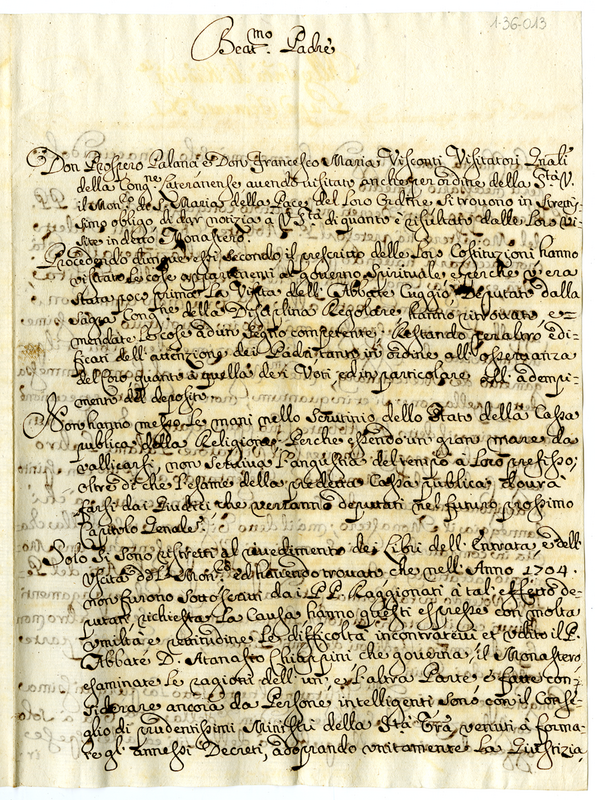 1-36-013
Beat.mo Padre
Don Prospero Palana e Don Francesco Maria Visconti Visitatori Gnali
della Cong.ne Lateranense avendo visitato anche per ordine della S.tà V.
il Mon.ro di S. Maria della Pace del Loro Ordine si trovono in strettis-
simo obligo di dar notizia a V. S.tà di quanto è risultato dalle Loro vi-
site in detto Monastero.
Procedendo dunque essi secondo il prescritto delle Loro Costituzioni hanno
visitato le cose appartenenti al governo spirituale e perche v'era
stata poco prima La Visita dell'Abbate Cuggiò Deputato dalla
Sagra Cong.ne della Disciplina Regolare hanno ritrovato e-
mendate Le cose ad un segno competente; Restando per altro edi-
ficati dell'attenzione dei Padri tanto in ordine all'osservanza
del Coro quanto a quella dei Voti ed in particolare all'adempi-
mento del deposito.
Non hanno messo Le mani nello Scrutinio dello Stato della Cassa
publica della Religione, Perche essendo un gran mare da
vallicarsi, non serviva l'angustia del tempo a Loro prefisso;
oltre di che l'esame della predetta Cassa publica dovrà
farsi dai Giudici che verranno deputati nel futuro prossimo
Capitolo Genale.
Solo si sono ristretti al rivedimento dei Libri dell'Entrata, e dell'
Uscita del Mon.ro ed havendo trovato che nell'Anno 1704.
non furono sottoscritti dai P.P. Raggionati a tal effetto de-
putati, richiesta La Causa hanno questi espresse con molta
umiltà e rettitudine Le difficoltà incontratevi et udito il P.
Abbate D. Atanasio Chiappini che governa il Monastero
esaminate Le ragioni dell'una e l'altra Parte e fatte con-
siderare ancora da Persone intelligenti sono con il Consi-
glio di prudentissimi Ministri della S.tà V.ra venuti a forma-
re gl'annessi Decreti, adoprando unitamente La Giustizia,